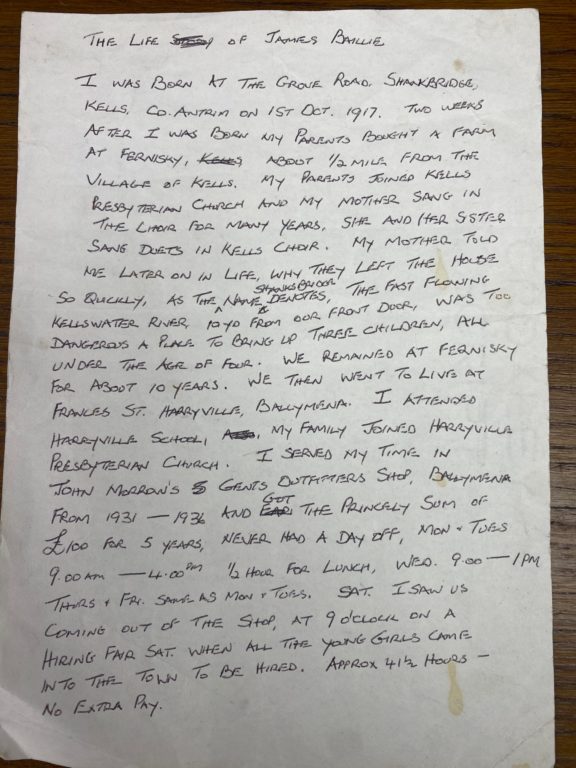 THE LIFE OF JAMES BAILLIE
I WAS BORN AT THE GROVE ROAD. SHANKBRIDGE,
KELLS, CO. ANTRIM ON 1ST OCT. 1917. TWO WEEKS
AFTER I WAS BORN MY PARENTS BOUGHT A FARM
AT FERNISKY, KELLS ABOUT 1/2 MILE FROM THE
VILLAGE OF KELLS. MY PARENTS JOINED KELLS
PRESBYTERIAN CHURCH AND MY MOTHER SANG IN
THE CHOIR FOR MANY YEARS, SHE AND HER SISTER
SANG DUETS IN KELLS CHOIR. MY MOTHER TOLD
ME LATER ON IN LIFE, WHY THEY LEFT THE HOUSE
SHANKSBRIDGE
SO QUICKLY, AS THE NAME DENOTES, THE FAST FLOWING
KELLSWATER RIVER, 10 YD FROM OUR FRONT DOOR, WAS TOO
DANGEROUS A PLACE TO BRING UP THREE CHILDREN, ALL
UNDER THE AGE OF FOUR. WE REMAINED AT FERNISKY
FOR ABOUT 10 YEARS. WE THEN WENT TO LIVE AT
FRANCES ST. HARRYVILLE, BALLYMENA. I ATTENDED
HARRYVILLE SCHOOL, MY FAMILY JOINED HARRYVILLE
PRESBYTERIAN CHURCH. I SERVED MY TIME IN
JOHN MORROW'S GENTS OUTFITTERS SHOP, BALLYMENA
GOT
FROM 1931 — 1936 AND THE PRINCELY SUM OF
£100 FOR 5 YEARS, NEVER HAD A DAY OFF, MON + TUES
9.00 AM — 4.00 PM 1/2 HOUR FOR LUNCH, WED. 9.00 — 1 PM
THURS + FRI. SAME AS MON + TUES. SAT. I SAW US
COMING OUT OF THE SHOP, AT 9 O'CLOCK ON A
HIRING FAIR SAT. WHEN ALL THE YOUNG GIRLS CAME
INTO THE TOWN TO BE HIRED. APPROX 41 1/2 HOURS —
NO EXTRA PAY.